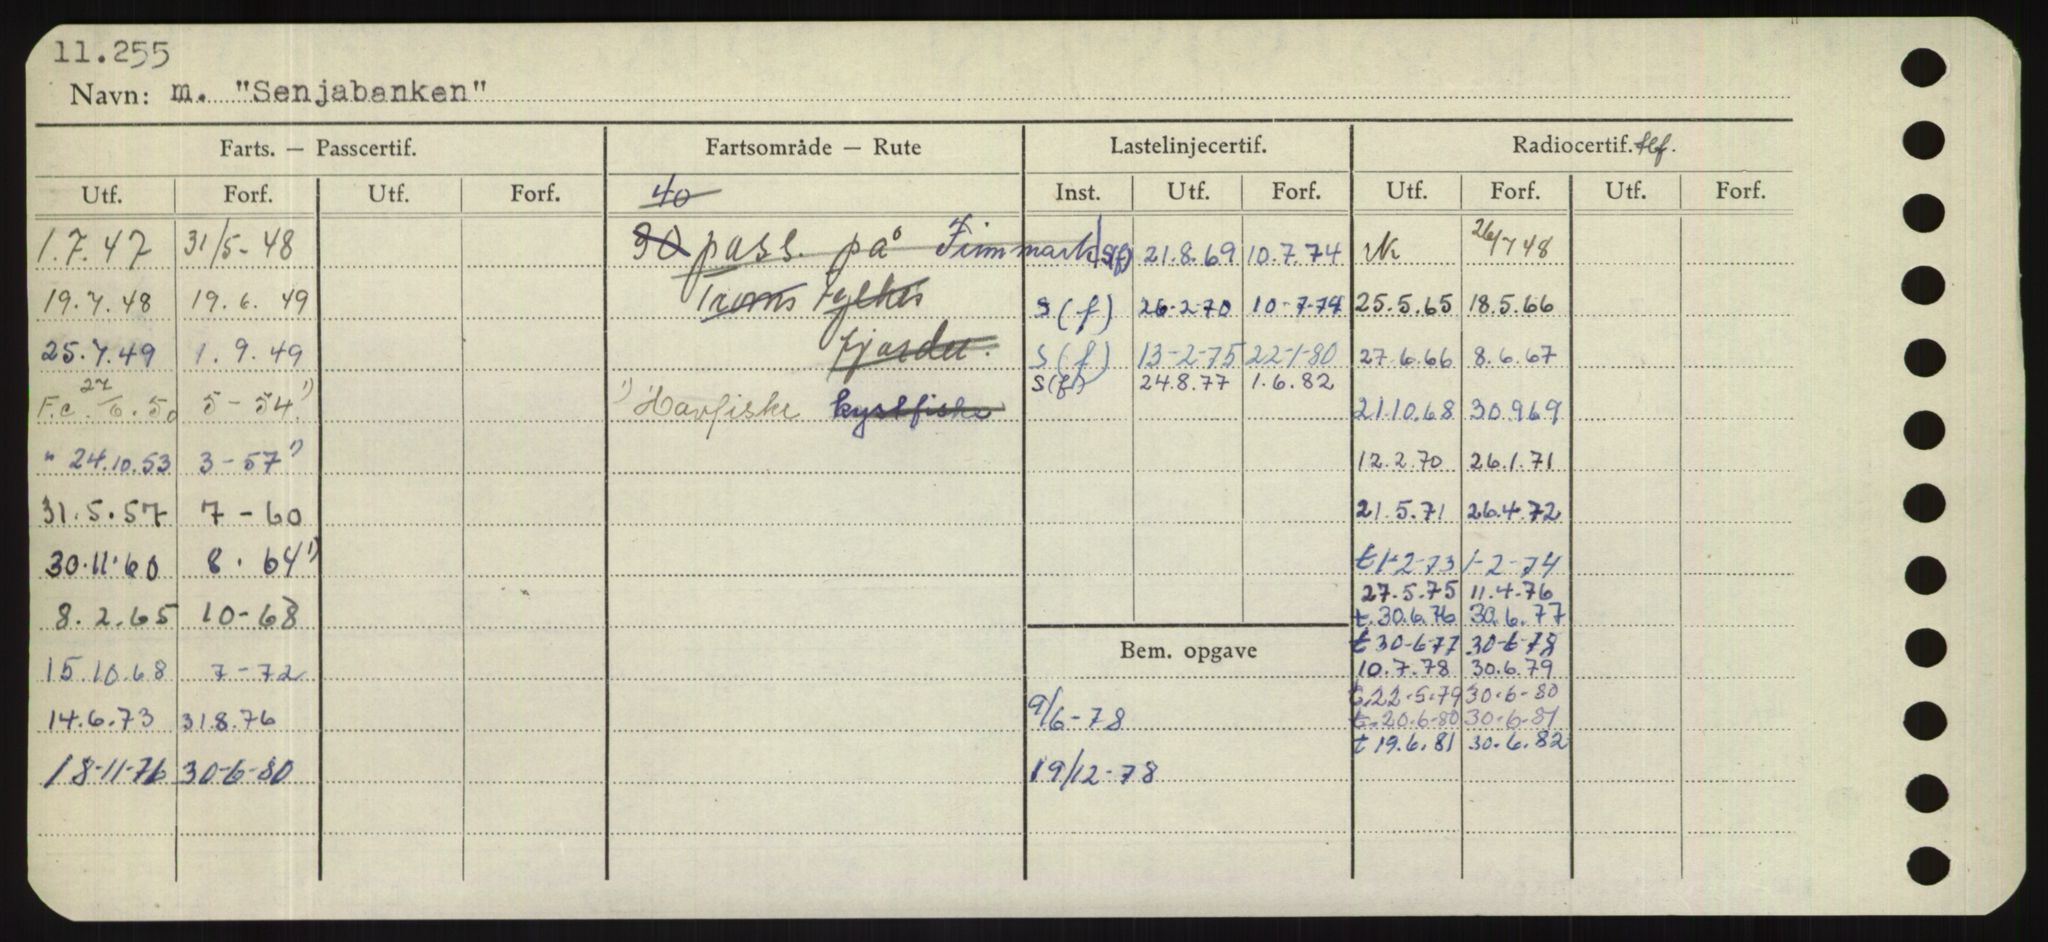 11.255
Navn: m. "Senjabanken"
Farts. — Passcertif. Fartsområde — Rute Lastelinjecertif. Radiocertif. tlf.
Utf. Forf. Utf. Forf. 40 Inst. Utf. Forf. Utf. Forf. Utf. Forf.
1.7.47 31/5-48 30 pass. på Finnmark S(f) 21.8.69 10.7.74 rk 26/7 48
19.7.48 19.6.49 Troms fylkes S(f) 26-2-70 10-7-74 25.5.65 18.5.66
25.7.49 1.9.49 fjorder. S(f) 13-2-75 22-1-80 27.6.66 8.6.67
S(f) 24.8.77 1.6.82
F.c. 27/6.50 5-54.¹) ¹) Havfiske kystfiske 21.10.68 30.9.69
" 24.10.53 3-57¹) 12.2.70 26.1.71
31.5.57 7-60 21.5.71 26.4.72
30.11.60 8.64¹) t 1-2-73 1-2-74
27.5.75 11.4.76
8.2.65 10-68 t. 30.6.76 30.6.77
Bem. opgave t 30-6-77 30-6-78
15.10.68 7-72 10.7.78 30.6.79
t. 22-5-79 30-6-80
14.6.73 31.8.76 9/6-78 t. 20-6-80 30-6-81
t 19.6.81 30.6.82
18-11-76 30-6-80 19/12-78